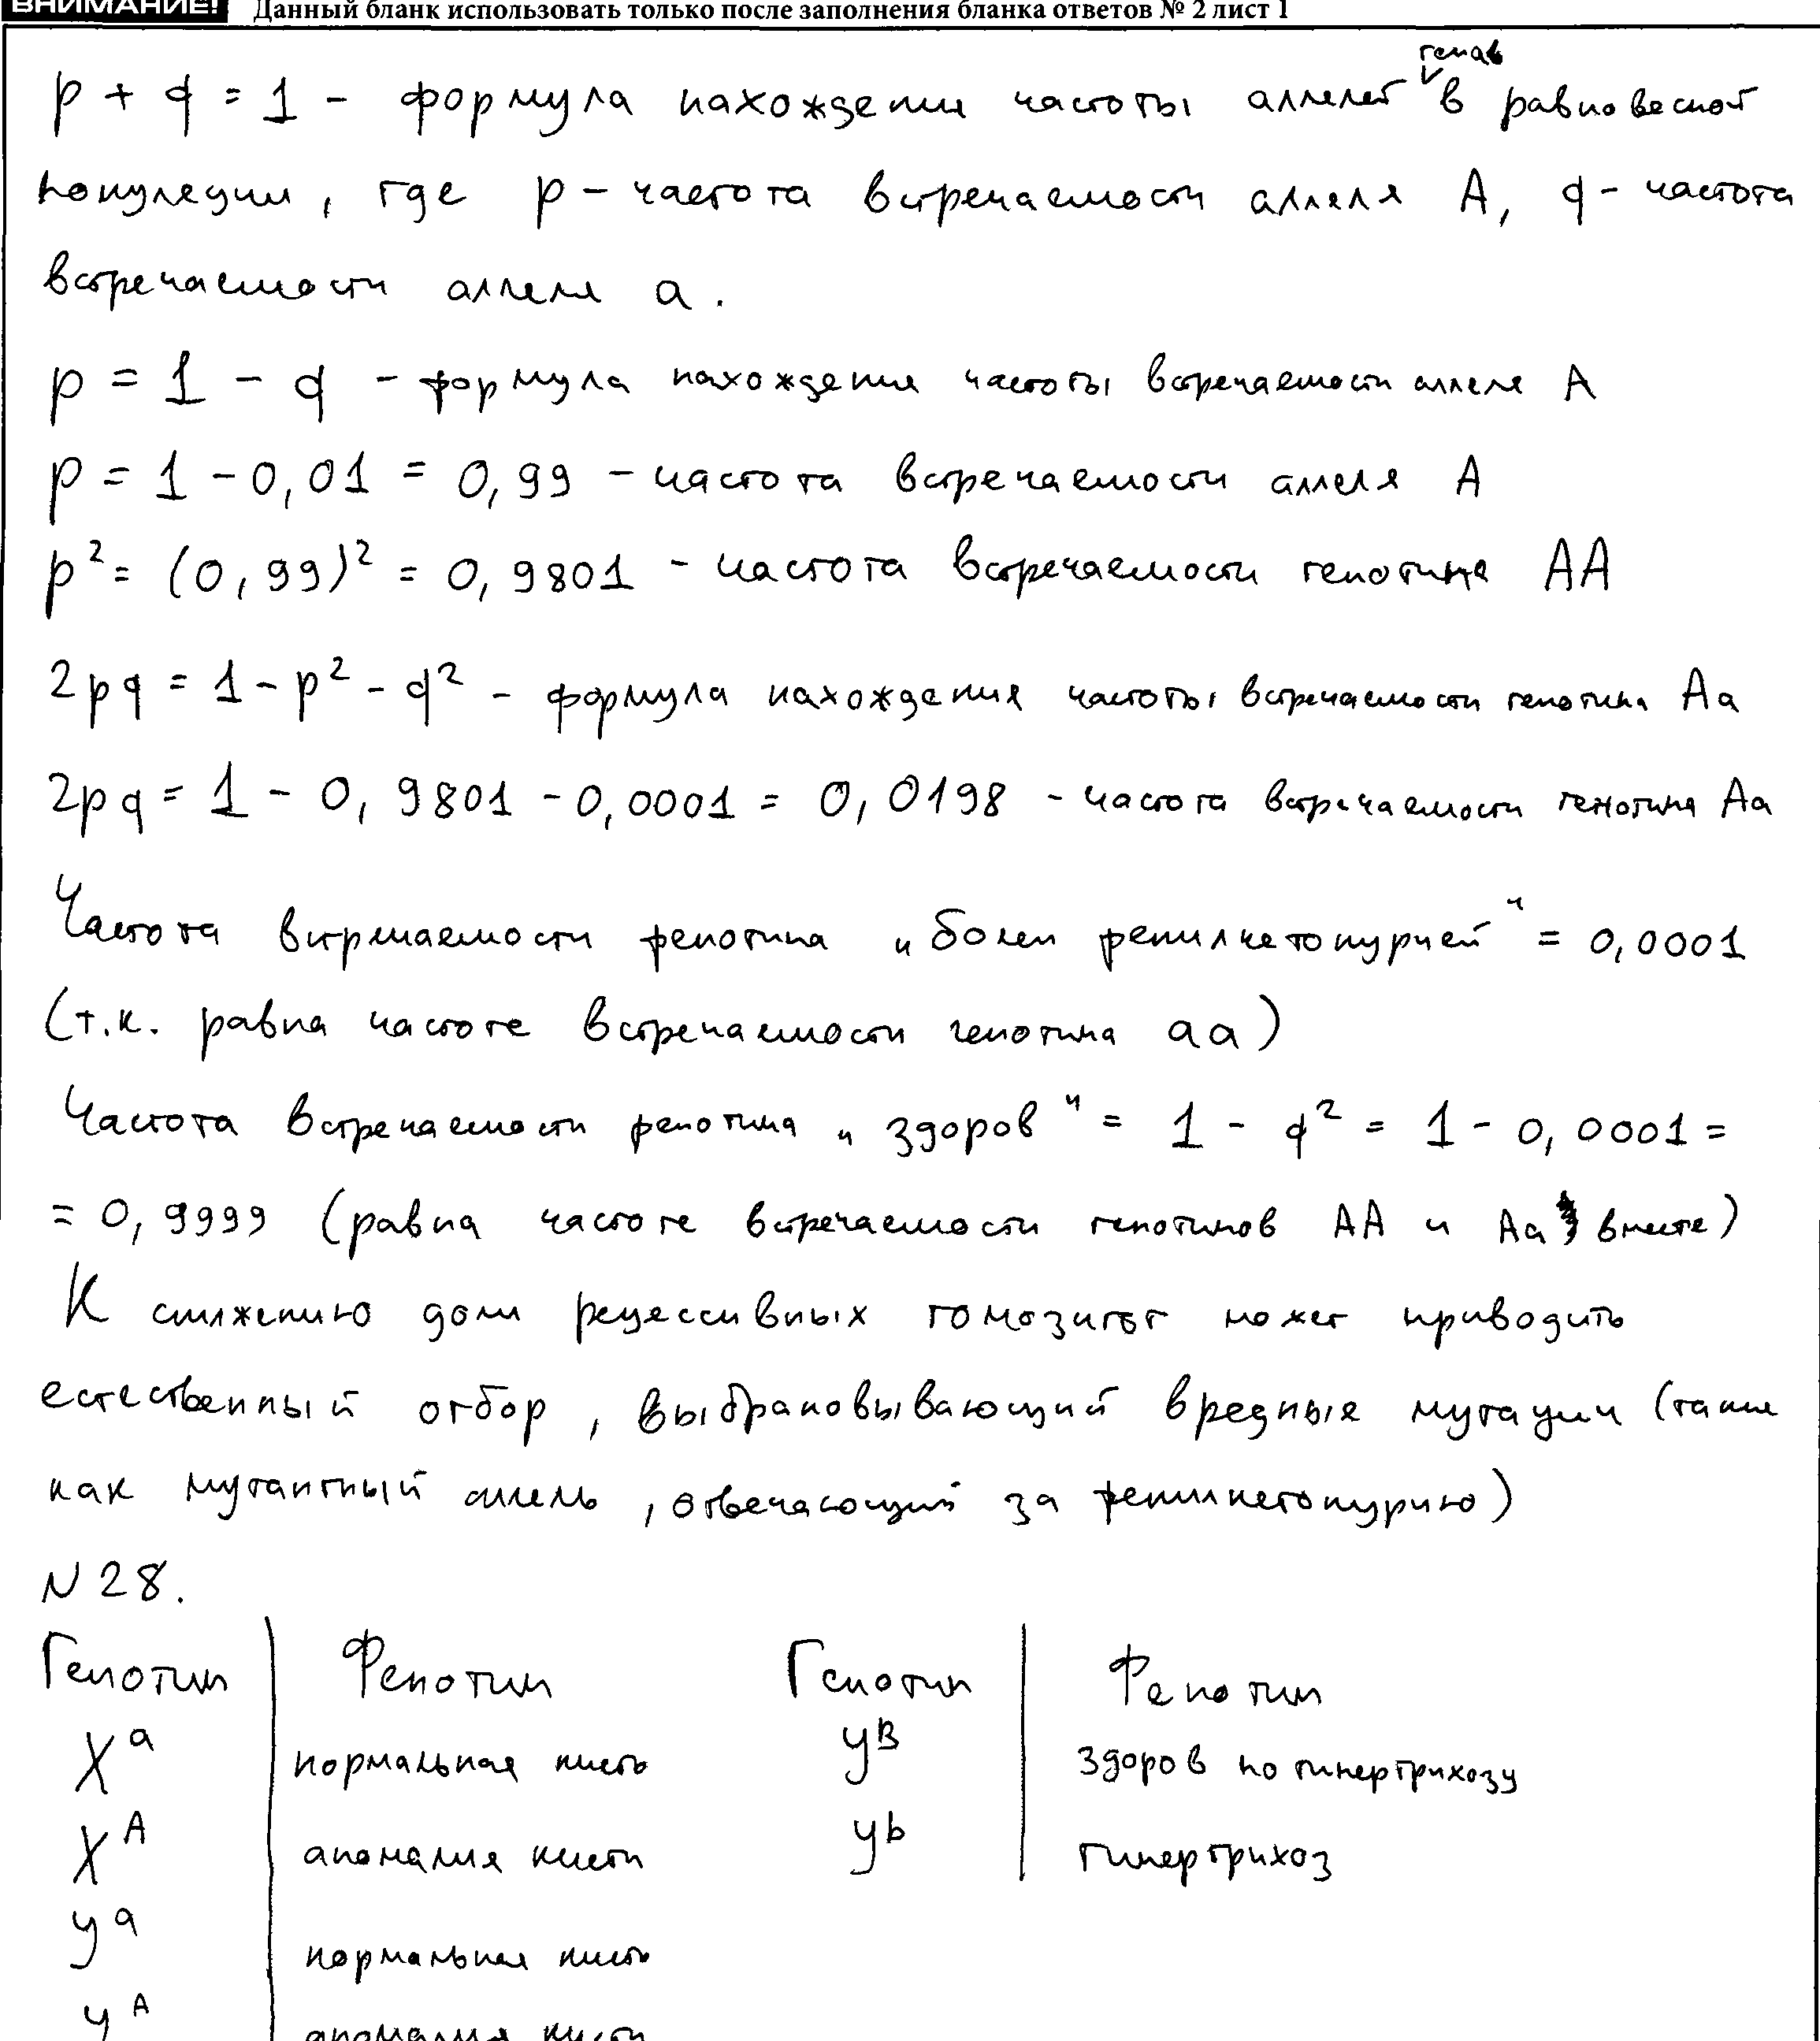 ВНИМАНИЕ! Данный бланк использовать только после заполнения бланка ответов № 2 лист 1
генов
p + q = 1 - формула нахождения частоты аллелей в равновесной
популяции, где p - частота встречаемости аллеля A, q - частота
встречаемости аллеля a.
p = 1 - q - формула нахождения частоты встречаемости аллеля A
p = 1 - 0,01 = 0,99 - частота встречаемости аллеля A
p² = (0,99)² = 0,9801 - частота встречаемости генотипа AA
2pq = 1 - p² - q² - формула нахождения частоты встречаемости генотипа Aa
2pq = 1 - 0,9801 - 0,0001 = 0,0198 - частота встречаемости генотипа Aa
Частота встречаемости фенотипа „болен фенилкетонурией" = 0,0001
(т.к. равна частоте встречаемости генотипа aa)
Частота встречаемости фенотипа „здоров" = 1 - q² = 1 - 0,0001 =
= 0,9999 (равна частоте встречаемости генотипов AA и Aa вместе)
К снижению доли рецессивных гомозигот может приводить
естественный отбор, выбраковывающий вредные мутации (такие
как мутантный аллель, отвечающий за фенилкетонурию)
N 28.
Генотип | Фенотип Генотип | Фенотип
Xᵃ | нормальная кисть Yᴮ | здоров по гипертрихозу
Xᴬ | аномалия кисти Yᵇ | гипертрихоз
Yᵃ | нормальная кисть
Yᴬ | аномалия кисти